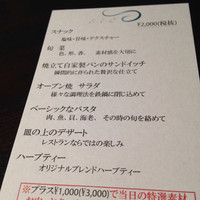 ¥2,000(税抜)
スナック
塩味・甘味・テクスチャー
旬 菜
色、形、香、 素材感を大切に
焼立て自家製パンのサンドイッチ
瞬間的に作られた贅沢な仕立て
オーブン焼 サラダ
様々な調理法を鉄鍋に閉じ込めて
ベーシックなパスタ
肉、魚、貝、海老、 その時の旬を絡めて
皿の上のデザート
レストランならではの楽しみ
ハーブティー
オリジナルブレンドハーブティー
※プラス¥1,000(¥3,000)で当日の特選素材